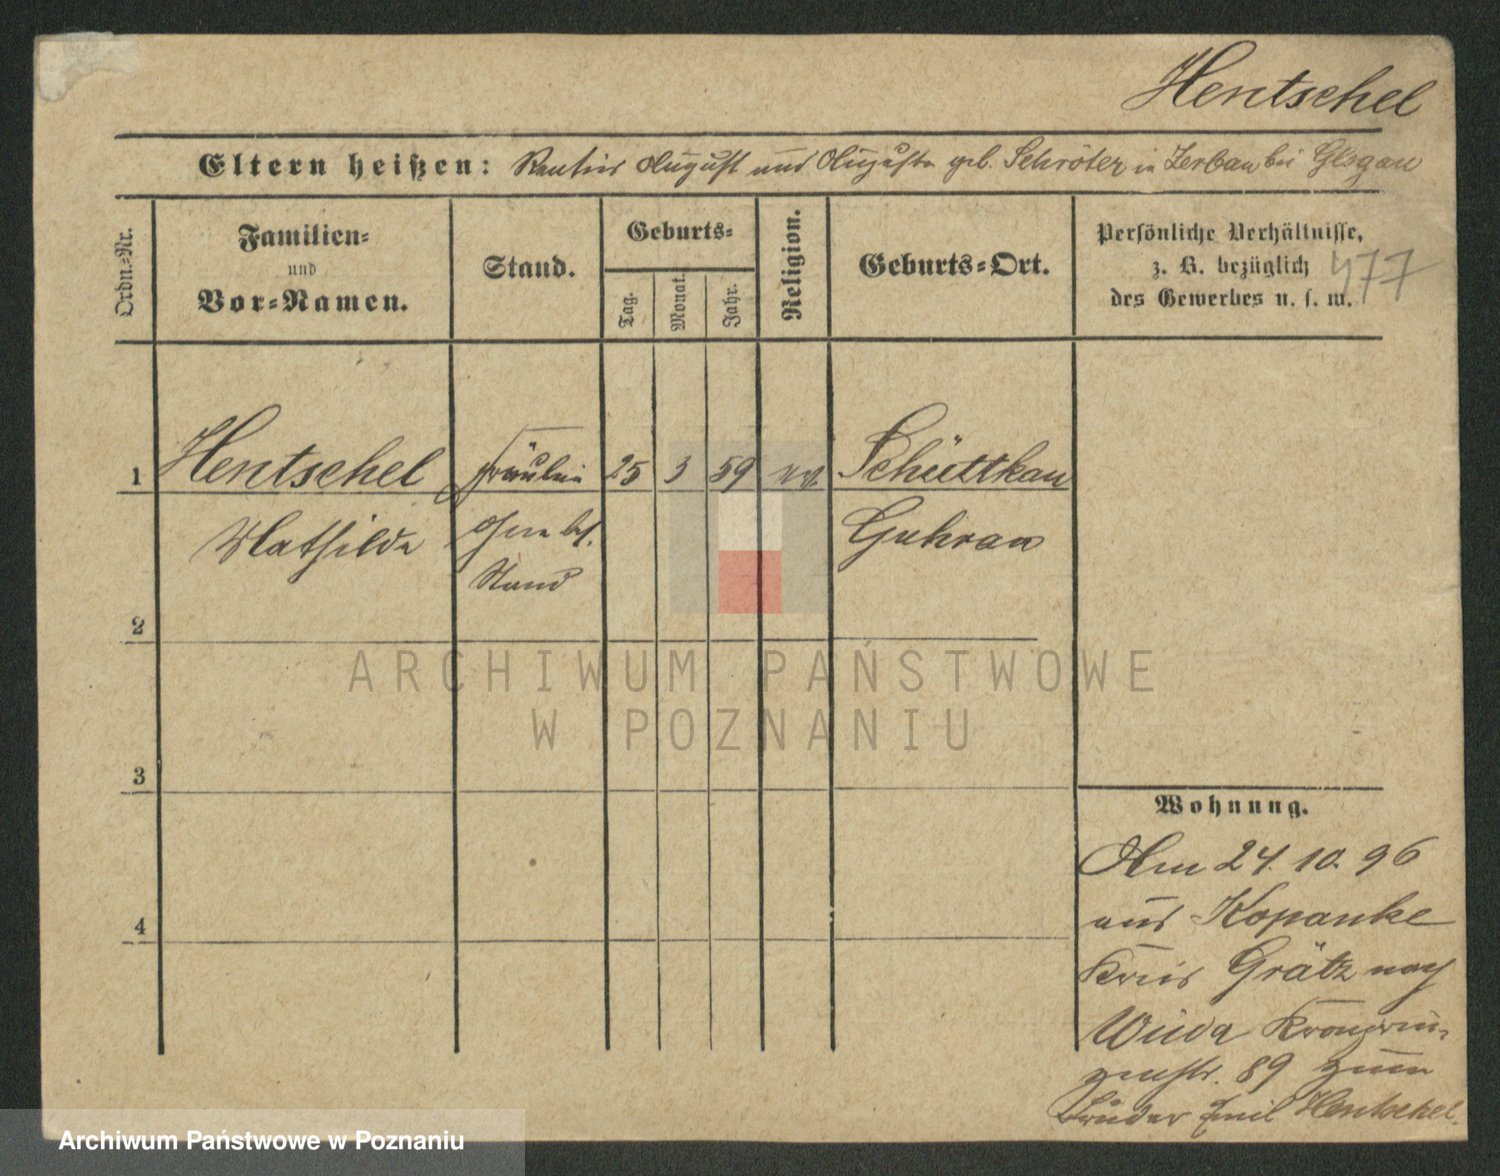 Hentschel
Eltern heißen: Rentier August und Auguste geb. Schröter in Zerbau bei Glogau
Ordn.-Nr.
Familien-
und
Vor-Namen.
Stand.
Geburts-
Tag.
Monat.
Jahr.
Religion.
Geburts-Ort.
Persönliche Verhältnisse,
z. B. bezüglich
des Gewerbes u. s. w.
477
1 Hentschel Fräulein 25 3 59 ev. Schüttkau
Mathilde ohne bes. Guhrau
Stand
2
3
4
Wohnung.
Am 24. 10. 96
aus Kopanke
Kreis Grätz nach
Wilda Kronprin-
zenstr. 89 zum
Bruder Emil Hentschel.
ARCHIWUM PAŃSTWOWE
W POZNANIU
Archiwum Państwowe w Poznaniu